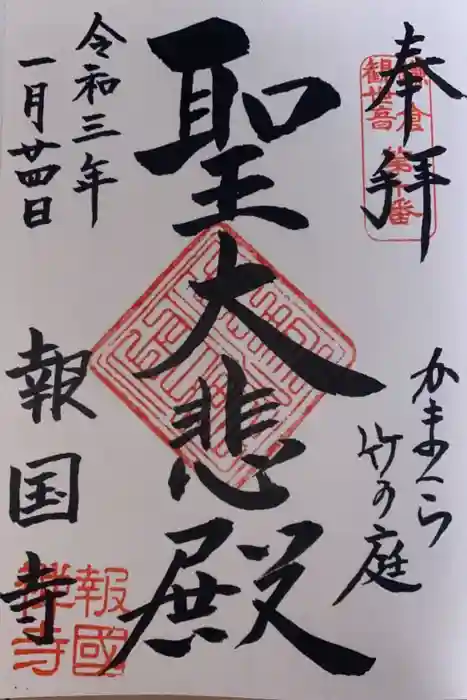 奉拝
鎌倉
観世音
第十番
かまくら
竹の庭
聖大悲殿
令和三年
一月廿四日
報国寺
報國
禅寺